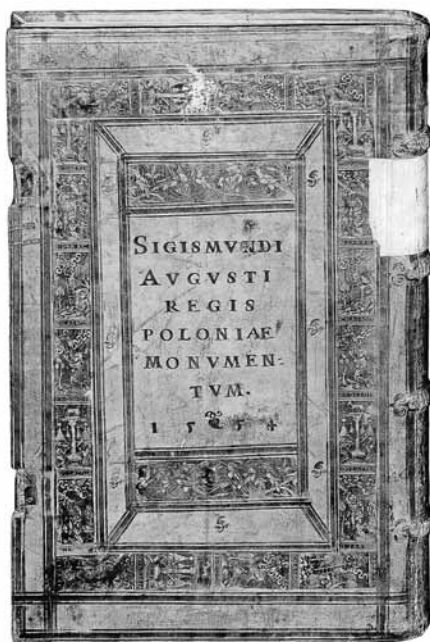 SIGISMVNDI
AVGVSTI
REGIS
POLONIAE
MONVMEN-
TVM.
1554